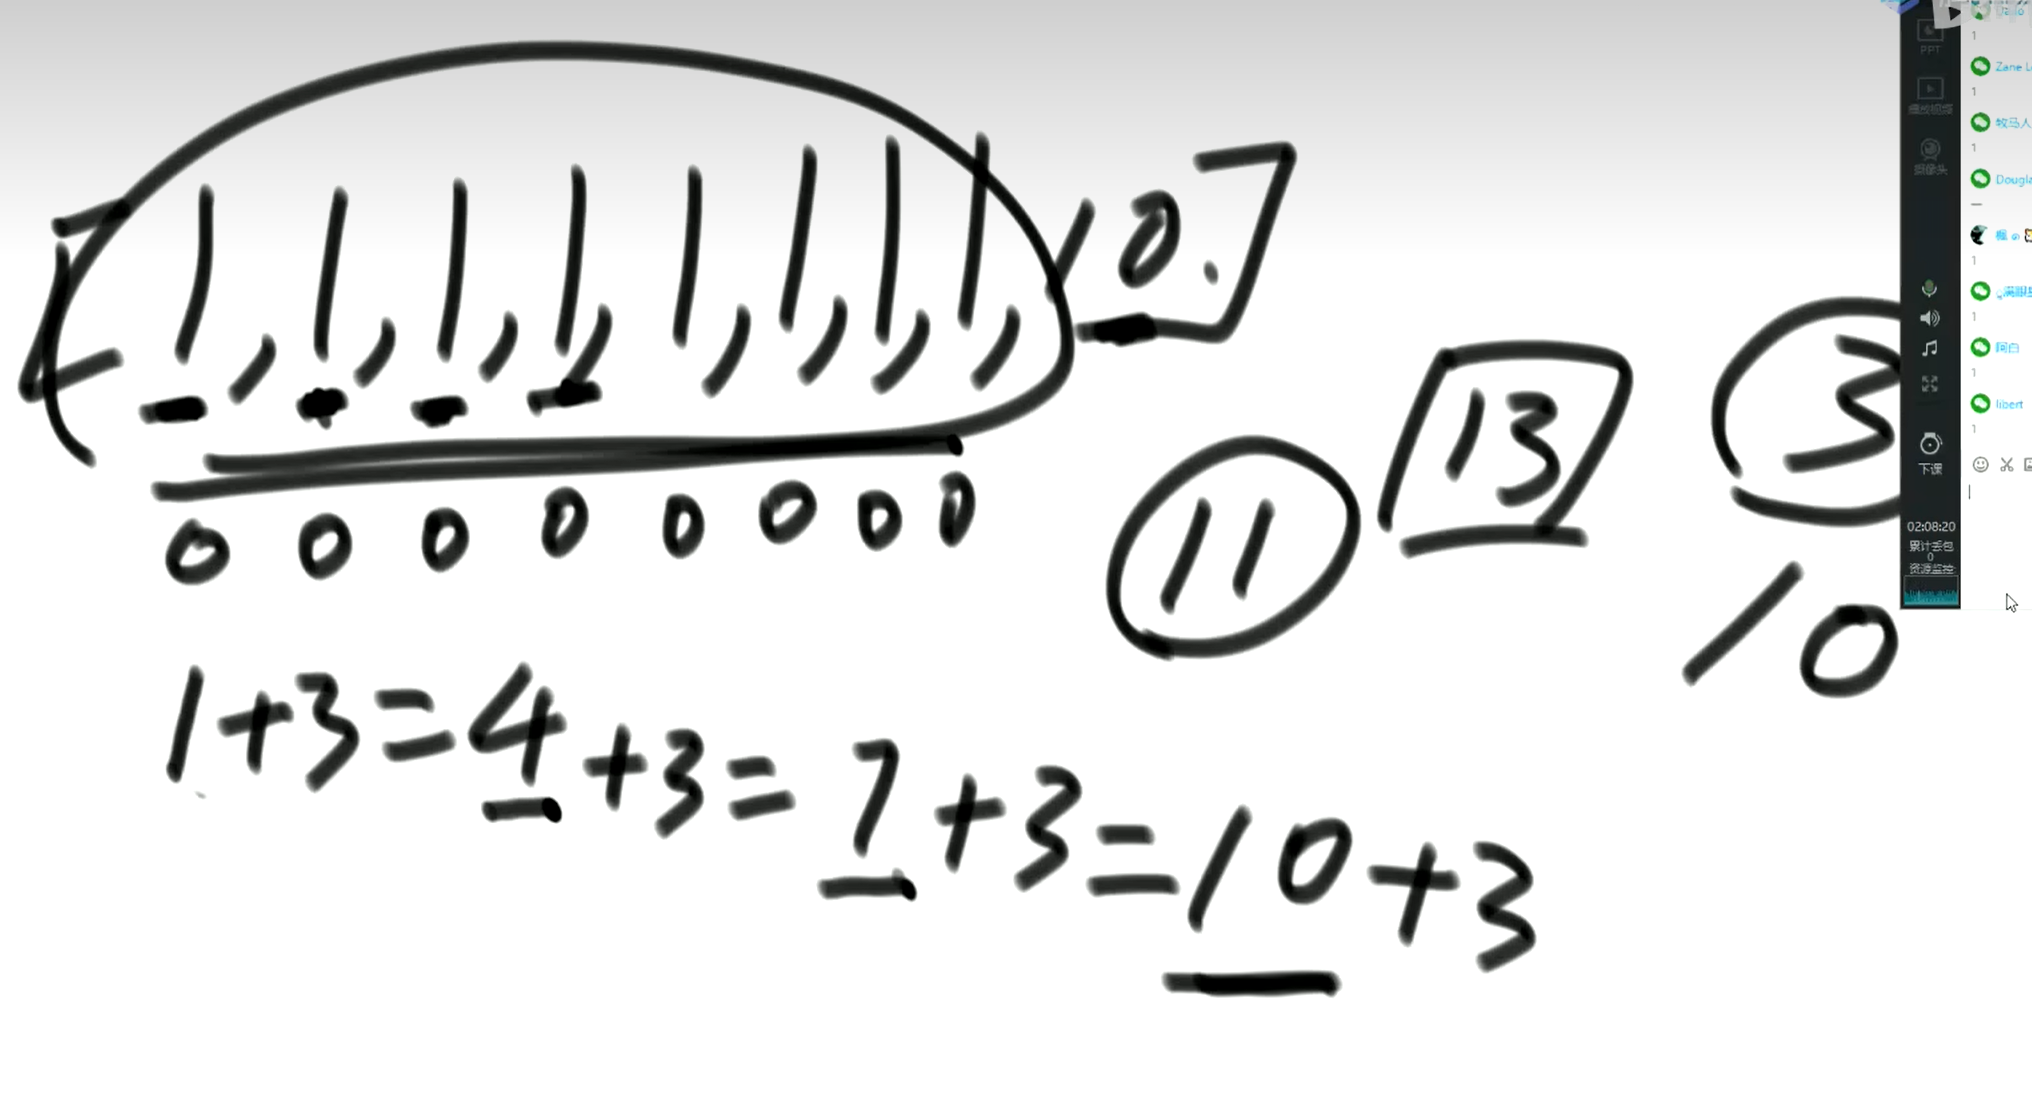 [1,1,1,1,1,1,1,1,10.]
0 0 0 0 0 0 0 0
11
13
3
10
1+3=4+3=7+3=10+3
PPT
播放视频
摄像头
下课
02:08:20
累计丢包
0
资源监控
1
Zane L
1
牧马人
1
Dougla
1
1
阿白
1
libert
1